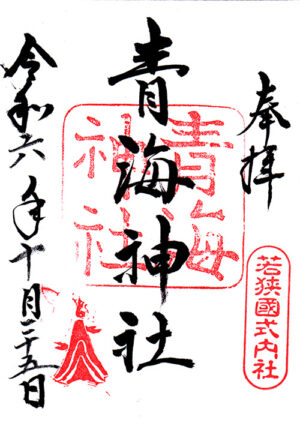 奉拝
若狭國式内社
青海神社
青海
神社
令和六年十月二十五日